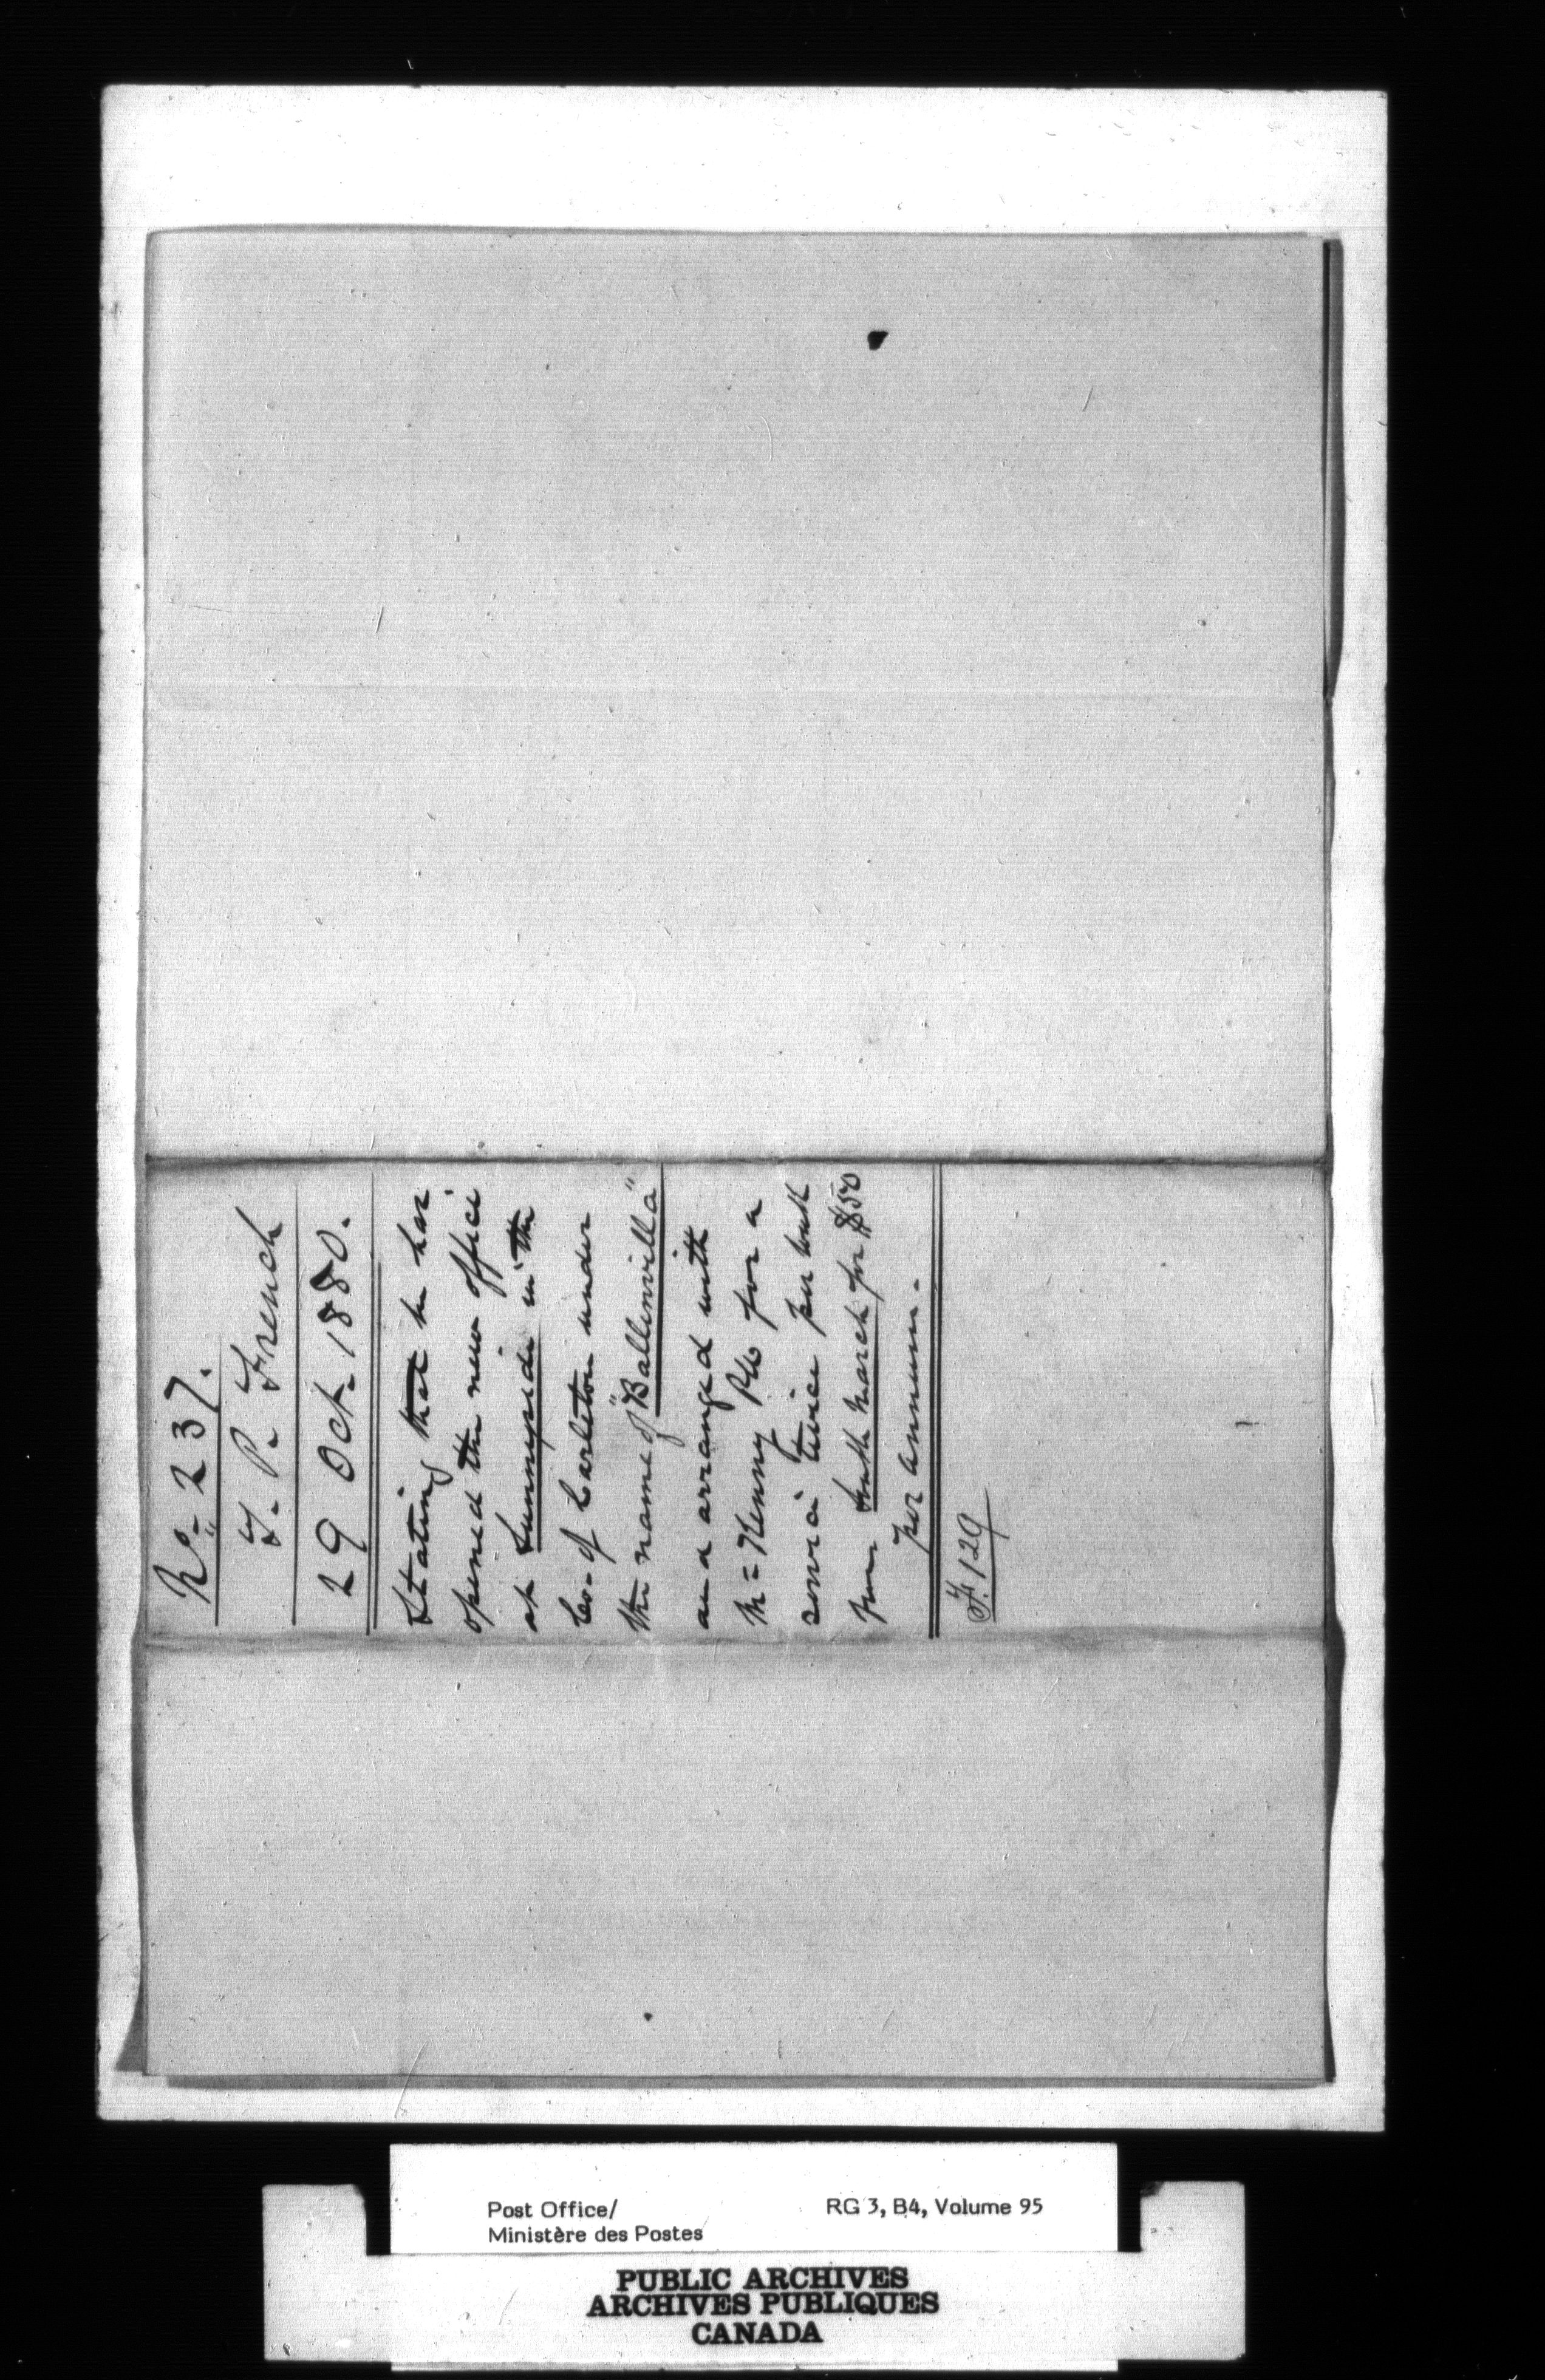 No. 237.
T. P. French
29 Oct. 1880.
Stating that he has
opened the new office
at Sunnyside in the
Co. of Carleton under
the name of "Ballinville"
and arranged with
Mr Kenny P.M. for a
service twice per week
from South March for $50
per annum.
F. 129
Post Office/
Ministère des Postes
RG 3, B4, Volume 95
PUBLIC ARCHIVES
ARCHIVES PUBLIQUES
CANADA